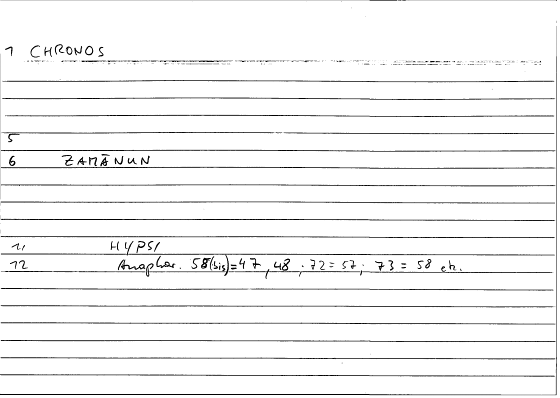 1 CHRONOS
5
6 ZAMĀNUN
11 HYPSI
12 Anaphor. 58(bis)=47, 48 ; 72=57; 73=58 etc.